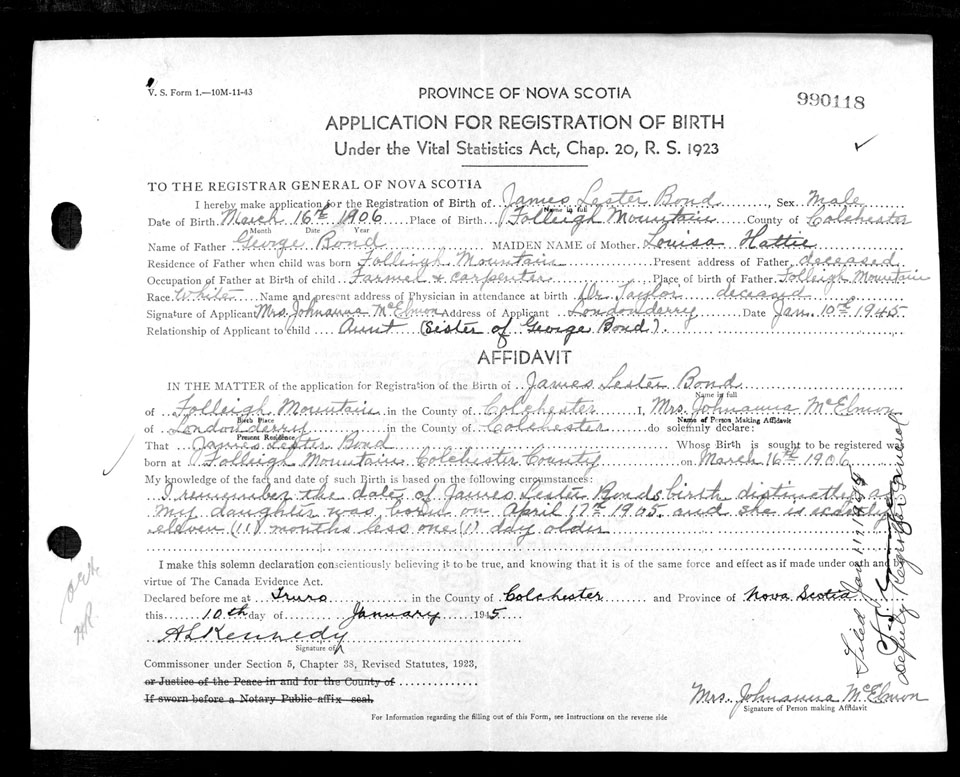 V. S. Form 1.—10M-11-43
PROVINCE OF NOVA SCOTIA
990118
APPLICATION FOR REGISTRATION OF BIRTH
Under the Vital Statistics Act, Chap. 20, R. S. 1923
TO THE REGISTRAR GENERAL OF NOVA SCOTIA
I hereby make application for the Registration of Birth of James Lester Bond, Sex Male
Name in full
Date of Birth March 16th 1906 Place of Birth Folleigh Mountain County of Colchester
Month Date Year
Name of Father George Bond MAIDEN NAME of Mother Louisa Hattie
Residence of Father when child was born Folleigh Mountain Present address of Father deceased
Occupation of Father at Birth of child Farmer & carpenter Place of birth of Father Folleigh Mountain
Race White Name and present address of Physician in attendance at birth Dr. Taylor deceased
Signature of Applicant Mrs. Johnanna McElmon Address of Applicant Londonderry Date Jan. 10th 1945
Relationship of Applicant to child Aunt (Sister of George Bond).
AFFIDAVIT
IN THE MATTER of the application for Registration of the Birth of James Lester Bond
Name in full
of Folleigh Mountain in the County of Colchester I, Mrs. Johnanna McElmon
Birth Place Name of Person Making Affidavit
of Londonderry in the County of Colchester do solemnly declare:
Present Residence
That James Lester Bond Whose Birth is sought to be registered was
born at Folleigh Mountain Colchester County on March 16th 1906
My knowledge of the fact and date of such Birth is based on the following circumstances:
I remember the date of James Lester Bonds birth distinctly as
my daughter was born on April 17th 1905 and she is exactly
eleven (11) months less one (1) day older
I make this solemn declaration conscientiously believing it to be true, and knowing that it is of the same force and effect as if made under oath and by
virtue of The Canada Evidence Act.
Declared before me at Truro in the County of Colchester and Province of Nova Scotia
this 10th day of January 1945
A L Kennedy
Signature of
Commissoner under Section 5, Chapter 38, Revised Statutes, 1923,
or Justice of the Peace in and for the County of
If sworn before a Notary Public affix seal.
Mrs. Johnanna McElmon
Signature of Person making Affidavit
For Information regarding the filling out of this Form, see Instructions on the reverse side
Filed Jan 11, 1945
Deputy Registrar General